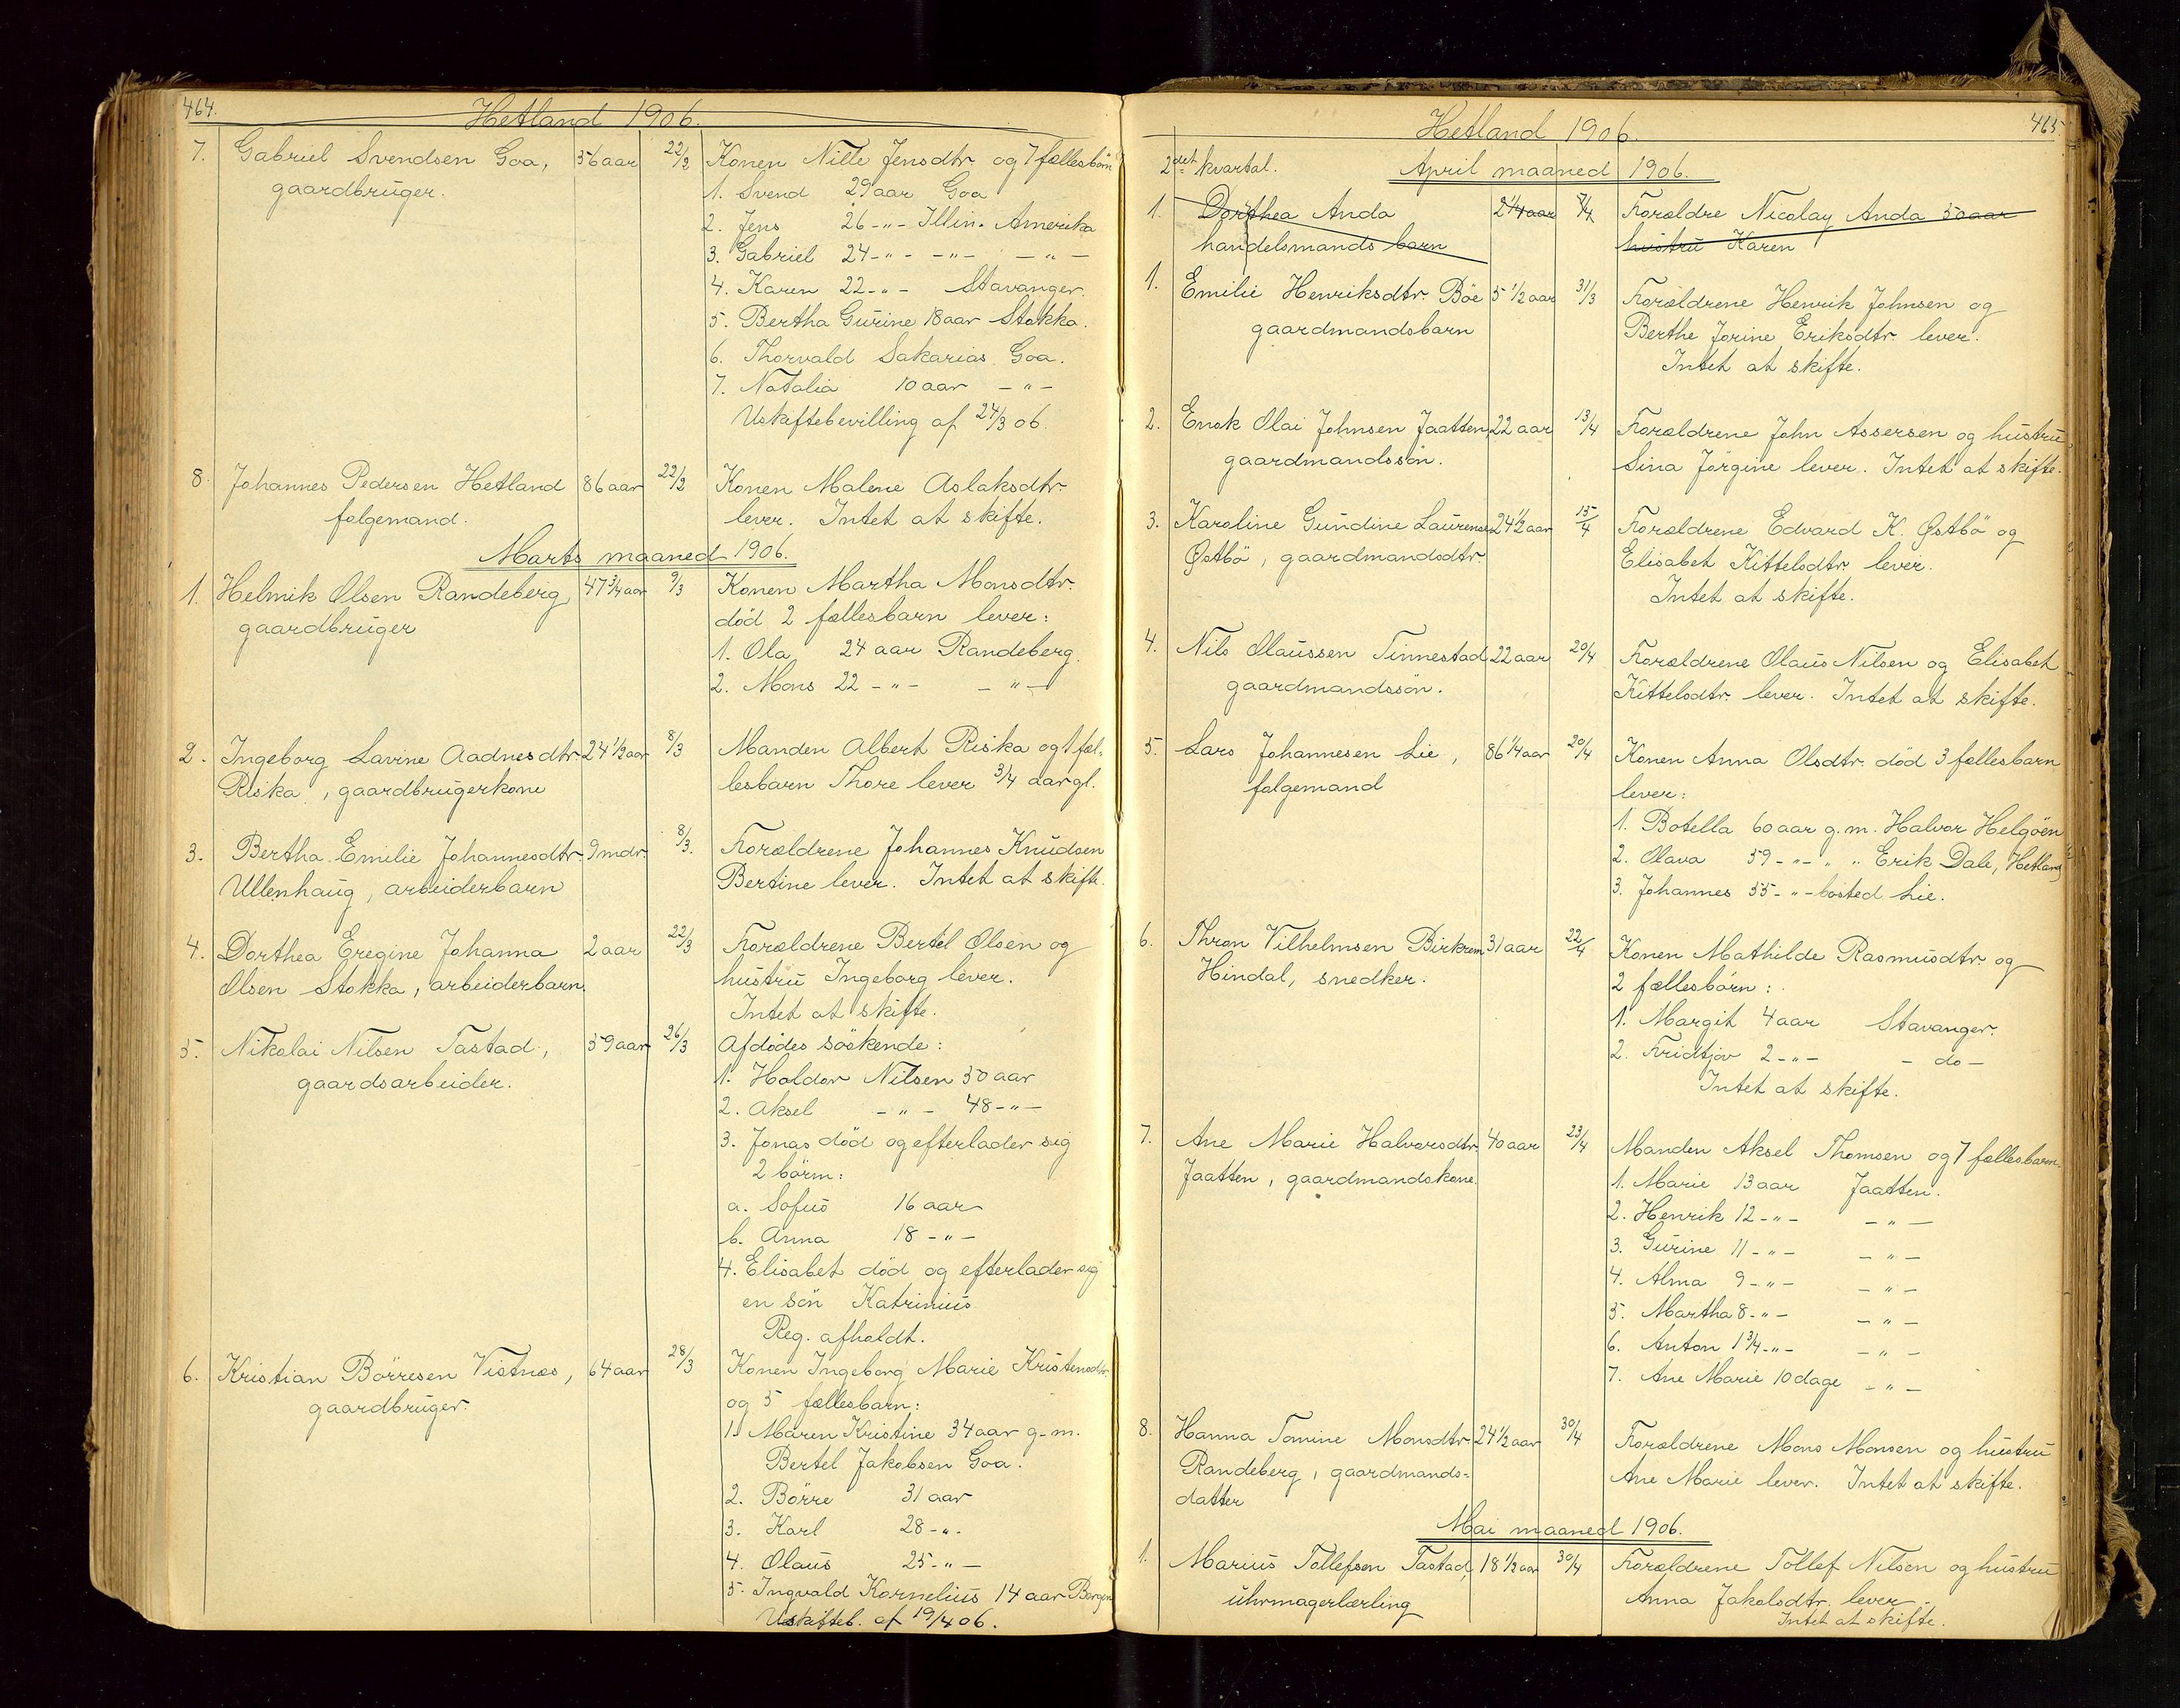 464.
Hetland 1906.
7. Gabriel Svendsen Goa, 56 aar 22/2 Konen Nille Jensdtr. og 7 fællesbörn
gaardbruger.
1. Svend 29 aar Goa
2. Jens 26 -"- Illin. Amerika
3. Gabriel 24 -"- -"- -"-
4. Karen 22 -"- Stavanger.
5. Bertha Gurine 18 aar Stokka.
6. Thorvald Sakarias Goa.
7. Natalia 10 aar -"-
Uskiftebevilling af 24/3 06.
8. Johannes Pedersen Hetland 86 aar 22/2 Konen Malene Aslaksdtr.
folgemand. lever. Intet at skifte.
Marts maaned 1906.
1. Helmik Olsen Randeberg 47 3/4 aar 9/3 Konen Martha Monsdtr.
gaardbruger død 2 fællesbarn lever:
1. Ola 24 aar Randeberg.
2. Mons 22 -"- -"-
2. Ingeborg Lavine Aadnesdtr. 24 1/2 aar 8/3 Manden Albert Riska og 1 fæl-
Riska, gaardbrugerkone lesbarn Thore lever 3/4 aar gl.
3. Bertha Emilie Johannesdtr. 9 mdr. 8/3. Forældrene Johannes Knudsen
Ullenhaug, arbeiderbarn Bertine lever. Intet at skifte.
4. Dorthea Eregine Johanna 2 aar 22/3 Forældrene Bertel Olsen og
Olsen Stokka, arbeiderbarn. hustru Ingeborg lever.
Intet at skifte.
5. Nikolai Nilsen Tastad, 59 aar 26/3 Afdödes söskende:
gaardsarbeider. 1. Haldor Nilsen 50 aar
2. Aksel -"- 48 -"-
3. Jonas död og efterlader sig
2 börm:
a. Sofus 16 aar
b. Anna 18 -"-
4. Elisabet död og efterlader sig
en sön Katrinius
Reg. afholdt.
6. Kristian Börresen Vistnes, 64 aar 28/3 Konen Ingeborg Marie Kristensdtr
gaardbruger. og 5 fællesbarn:
1. Maren Kristine 34 aar g. m.
Bertel Jakobsen Goa.
2. Börre 31 aar
3. Karl 28 -"-
4. Olaus 25 -"-
5. Ingvald Kornelius 14 aar Bergen
Uskifteb. af 19/4 06.
465.
Hetland 1906.
2det kvartal. April maaned 1906.
1. Dorthea Anda 2 1/4 aar 7/4 Forældre Nicolay Anda 50 aar
handelsmands barn hustru Karen
1. Emilie Henriksdtr. Böe 5 1/2 aar 31/3 Forældrene Henrik Johnsen og
gaardmandsbarn Berthe Jorine Eriksdtr. lever.
Intet at skifte.
2. Enok Olai Johnsen Jaatten, 22 aar 13/4 Forældrene John Assersen og hustru
gaardmandssön. Sina Jörgine lever. Intet at skifte.
3. Karoline Gundine Laurense 24 1/2 aar 15/4 Forældrene Edvard K. Østbö og
Østbö, gaardmandsdtr. Elisabet Kittelsdtr. lever.
Intet at skifte.
4. Nils Olaussen Tinnestad 22 aar 20/4 Forældrene Olaus Nilsen og Elisabet
gaardmandssön. Kittelsdtr. lever. Intet at skifte.
5. Lars Johannesen Lie, 86 1/4 aar 20/4 Konen Anna Olsdtr. död 3 fællesbarn
folgemand lever:
1. Botella 60 aar g. m. Halvor Helgöen
2. Olava 59 -"- " " Erik Dale, Hetland
3. Johannes 55 -"- bosted Lie.
6. Thron Vilhelmsen Birkrem 31 aar 22/4 Konen Mathilde Rasmusdtr. og
Hindal, snedker. 2 fællesbörn:
1. Margit 4 aar Stavanger.
2. Fridtjov 2 -"- - do -
Intet at skifte.
7. Ane Marie Halvorsdtr. 40 aar 23/4 Manden Aksel Thomsen og 7 fællesbarn.
Jaatten, gaardmandskone. 1. Marie 13 aar Jaatten.
2. Henrik 12 -"- -"-
3. Gurine 11 -"- -"-
4. Alma 9 -"- -"-
5. Martha 8 -"- -"-
6. Anton 1 3/4 -"- -"-
7. Ane Marie 10 dage -"-
8. Hanna Tomine Monsdtr. 24 1/2 aar 30/4 Forældrene Mons Monsen og hustru
Randeberg, gaardmands- Ane Marie lever. Intet at skifte.
datter
Mai maaned 1906.
1. Marius Tollefsen Tastad, 18 1/2 aar 30/4 Forældrene Tollef Nilsen og hustru
uhrmagerlærling Anna Jakobsdtr. lever.
Intet at skifte.